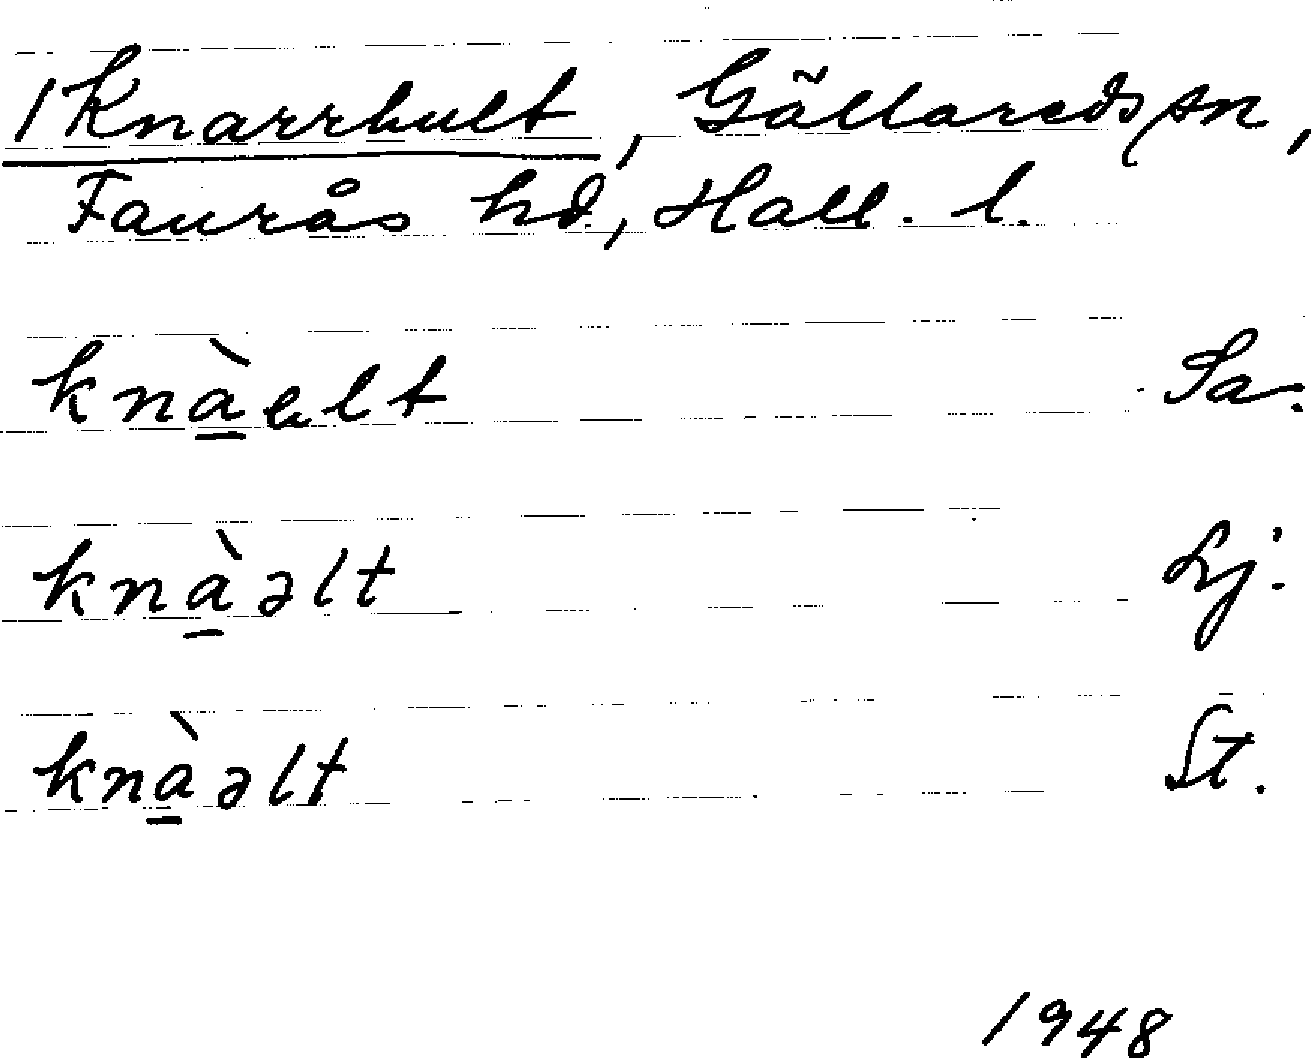 1 Knarrhult, Gällareds sn,
Faurås hd., Hall. l.
knàelt Sa.
knàəlt Lj.
knàəlt St.
1948